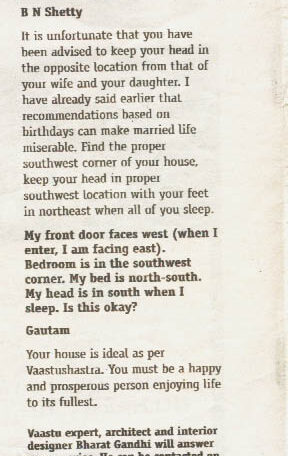 B N Shetty
It is unfortunate that you have
been advised to keep your head in
the opposite location from that of
your wife and your daughter. I
have already said earlier that
recommendations based on
birthdays can make married life
miserable. Find the proper
southwest corner of your house,
keep your head in proper
southwest location with your feet
in northeast when all of you sleep.
My front door faces west (when I
enter, I am facing east).
Bedroom is in the southwest
corner. My bed is north-south.
My head is in south when I
sleep. Is this okay?
Gautam
Your house is ideal as per
Vaastushastra. You must be a happy
and prosperous person enjoying life
to its fullest.
Vaastu expert, architect and interior
designer Bharat Gandhi will answer
He can be contacted on